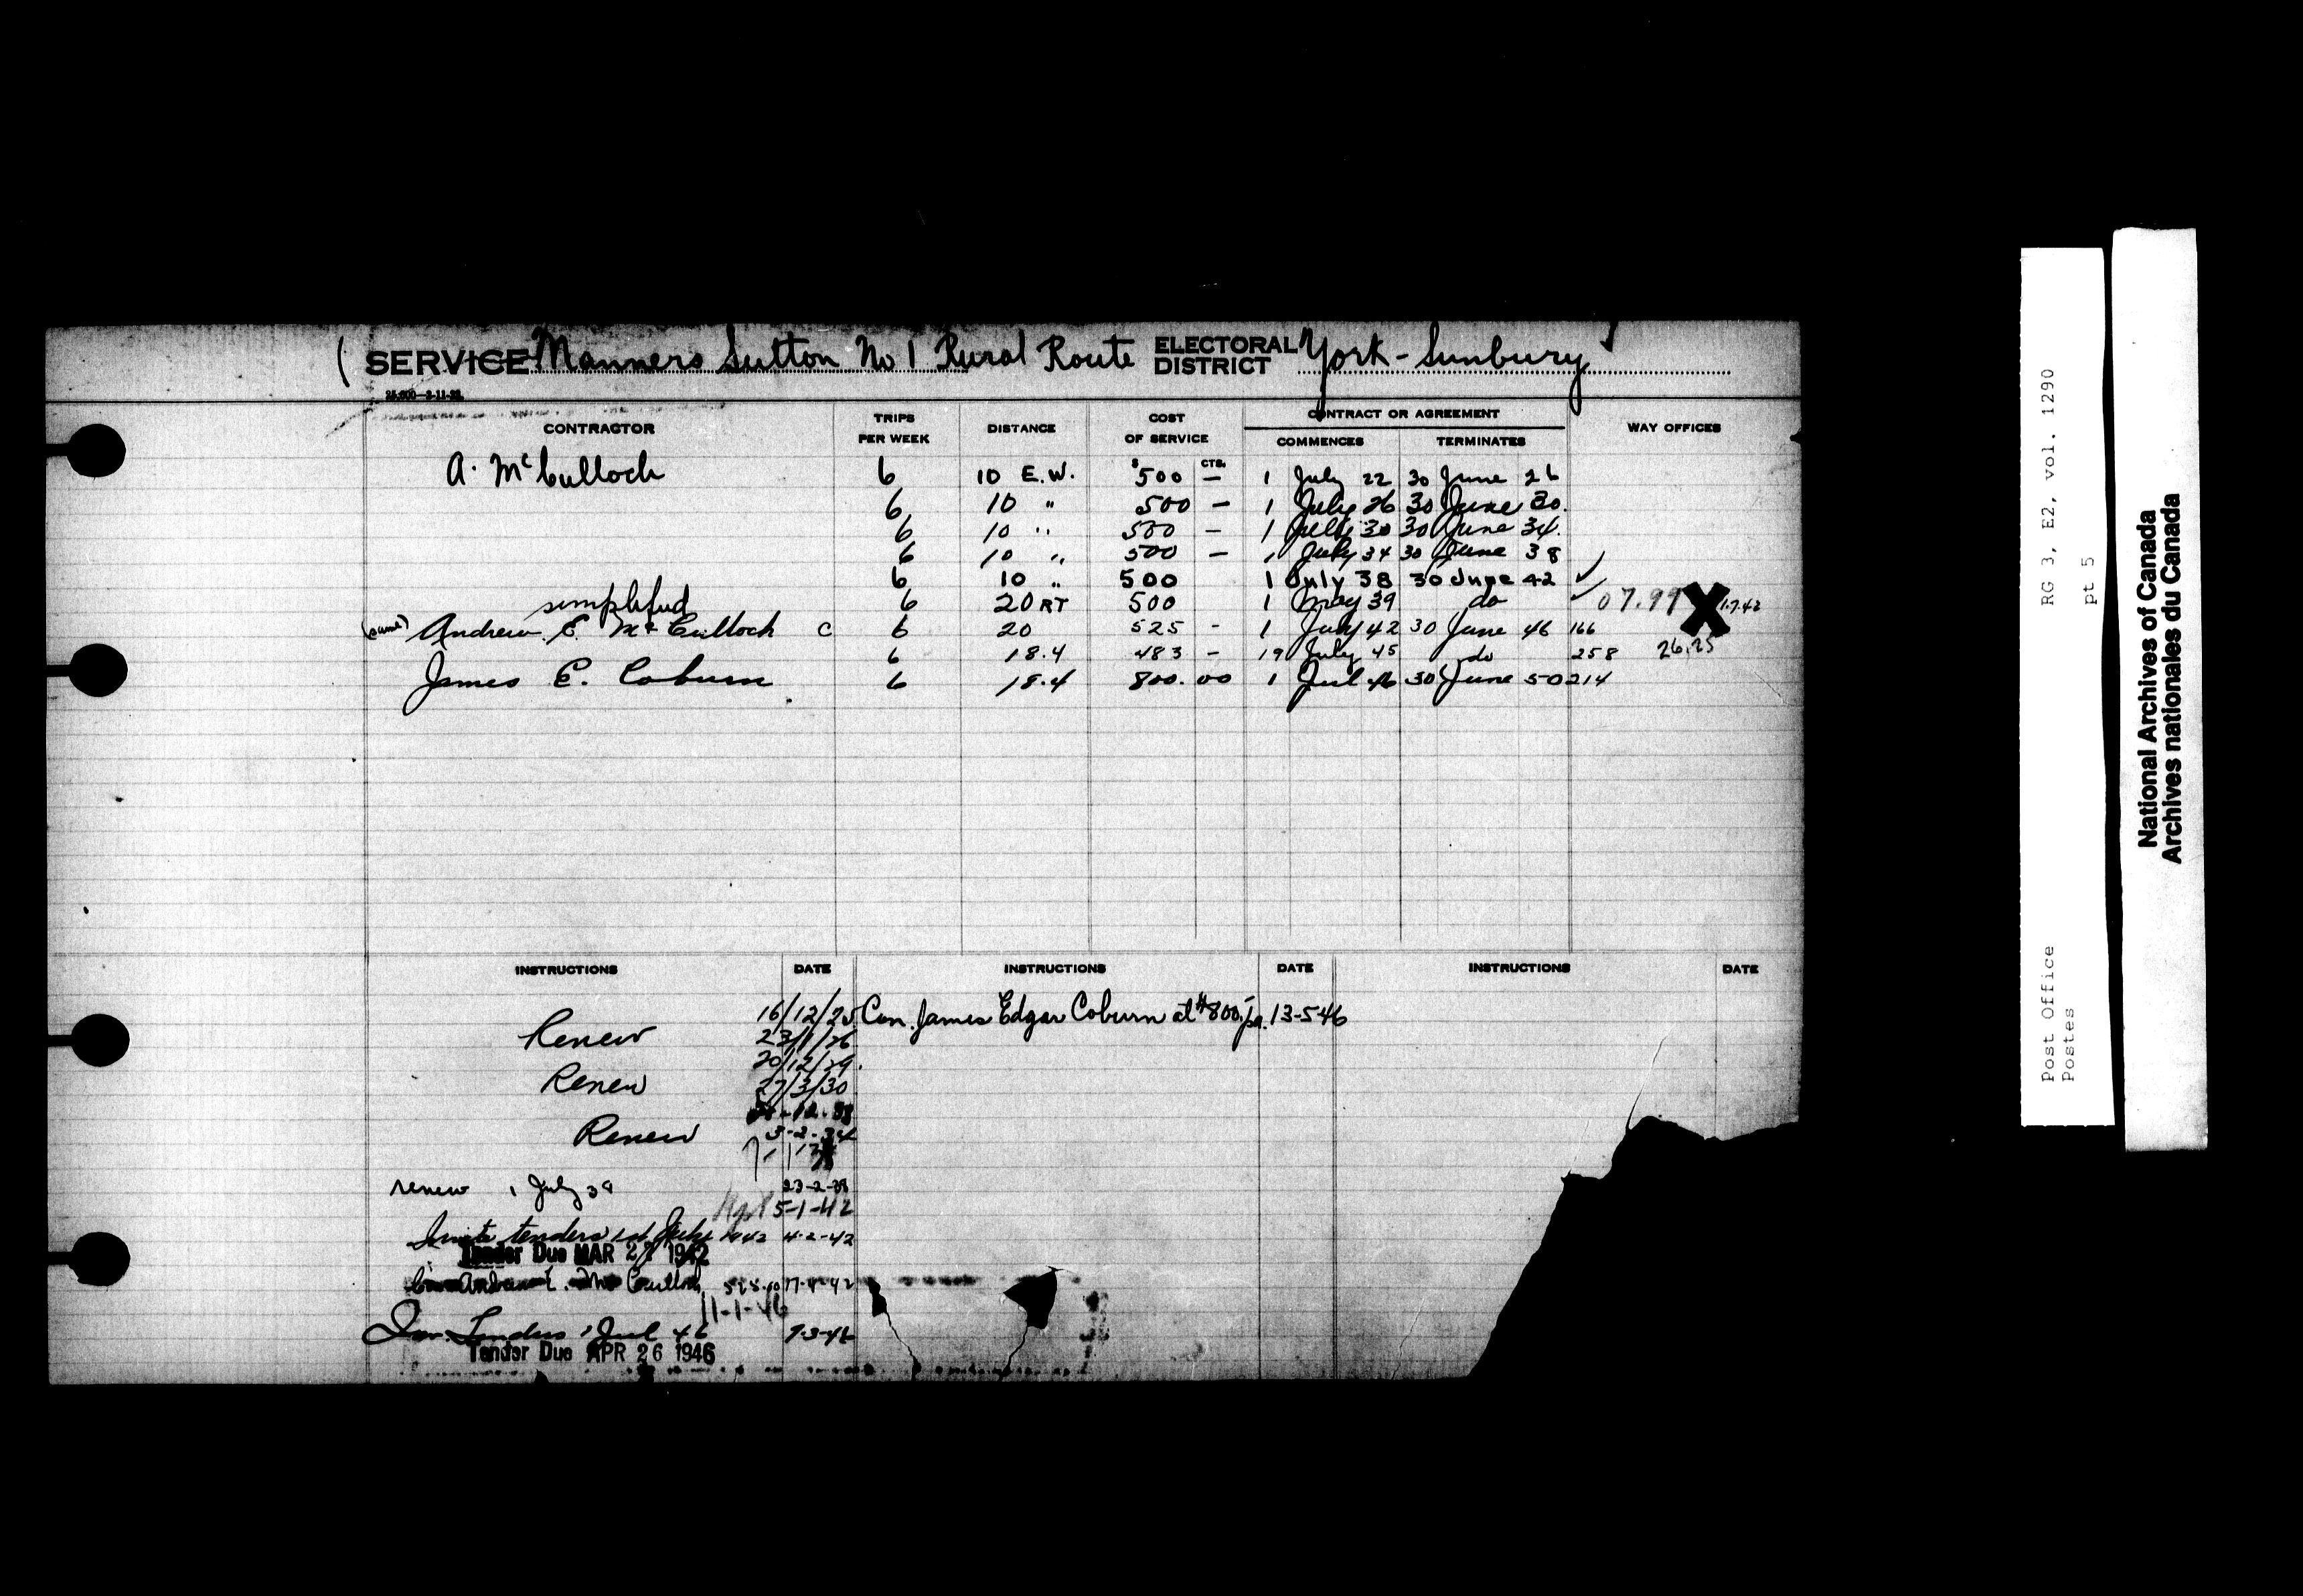 SERVICE Manners Sutton No 1 Rural Route ELECTORAL DISTRICT York - Sunbury
CONTRACTOR TRIPS PER WEEK DISTANCE COST OF SERVICE CONTRACT OR AGREEMENT COMMENCES TERMINATES WAY OFFICES
$ CTS.
A. McCulloch 6 10 E.W. 500 — 1 July 22 30 June 26
6 10 " 500 — 1 July 26 30 June 30.
6 10 " 500 - 1 July 30 30 June 34.
6 10 " 500 — 1 July 34 30 June 38
6 10 " 500 1 July 38 30 June 42 ✓
simplified 6 20 RT 500 1 May 39 do ✓ 07.99 X 1.7.42
(same) Andrew E. McCulloch C 6 20 525 - 1 July 42 30 June 46 166
6 18.4 483 - 19 July 45 do 258 26.25
James E. Coburn 6 18.4 800.00 1 Jul 46 30 June 50 214
INSTRUCTIONS DATE INSTRUCTIONS DATE INSTRUCTIONS DATE
16/12/25 Con. James Edgar Coburn at $800.- pa. 13-5-46
Renew 23/1/26
20/12/29.
Renew 27/3/30
Renew 3-2-34
renew 1 July 38 23-2-38
5-1-42
Invite tenders 1st July 1942 4-2-42
Tender Due MAR 27 1942
Con Andrew E. McCulloch 525.00 17-4-42
11-1-46
Inv. Tenders 1 Jul 46 7-3-46
Tender Due APR 26 1946
Post Office RG 3, E2, vol. 1290
Postes pt 5
National Archives of Canada
Archives nationales du Canada